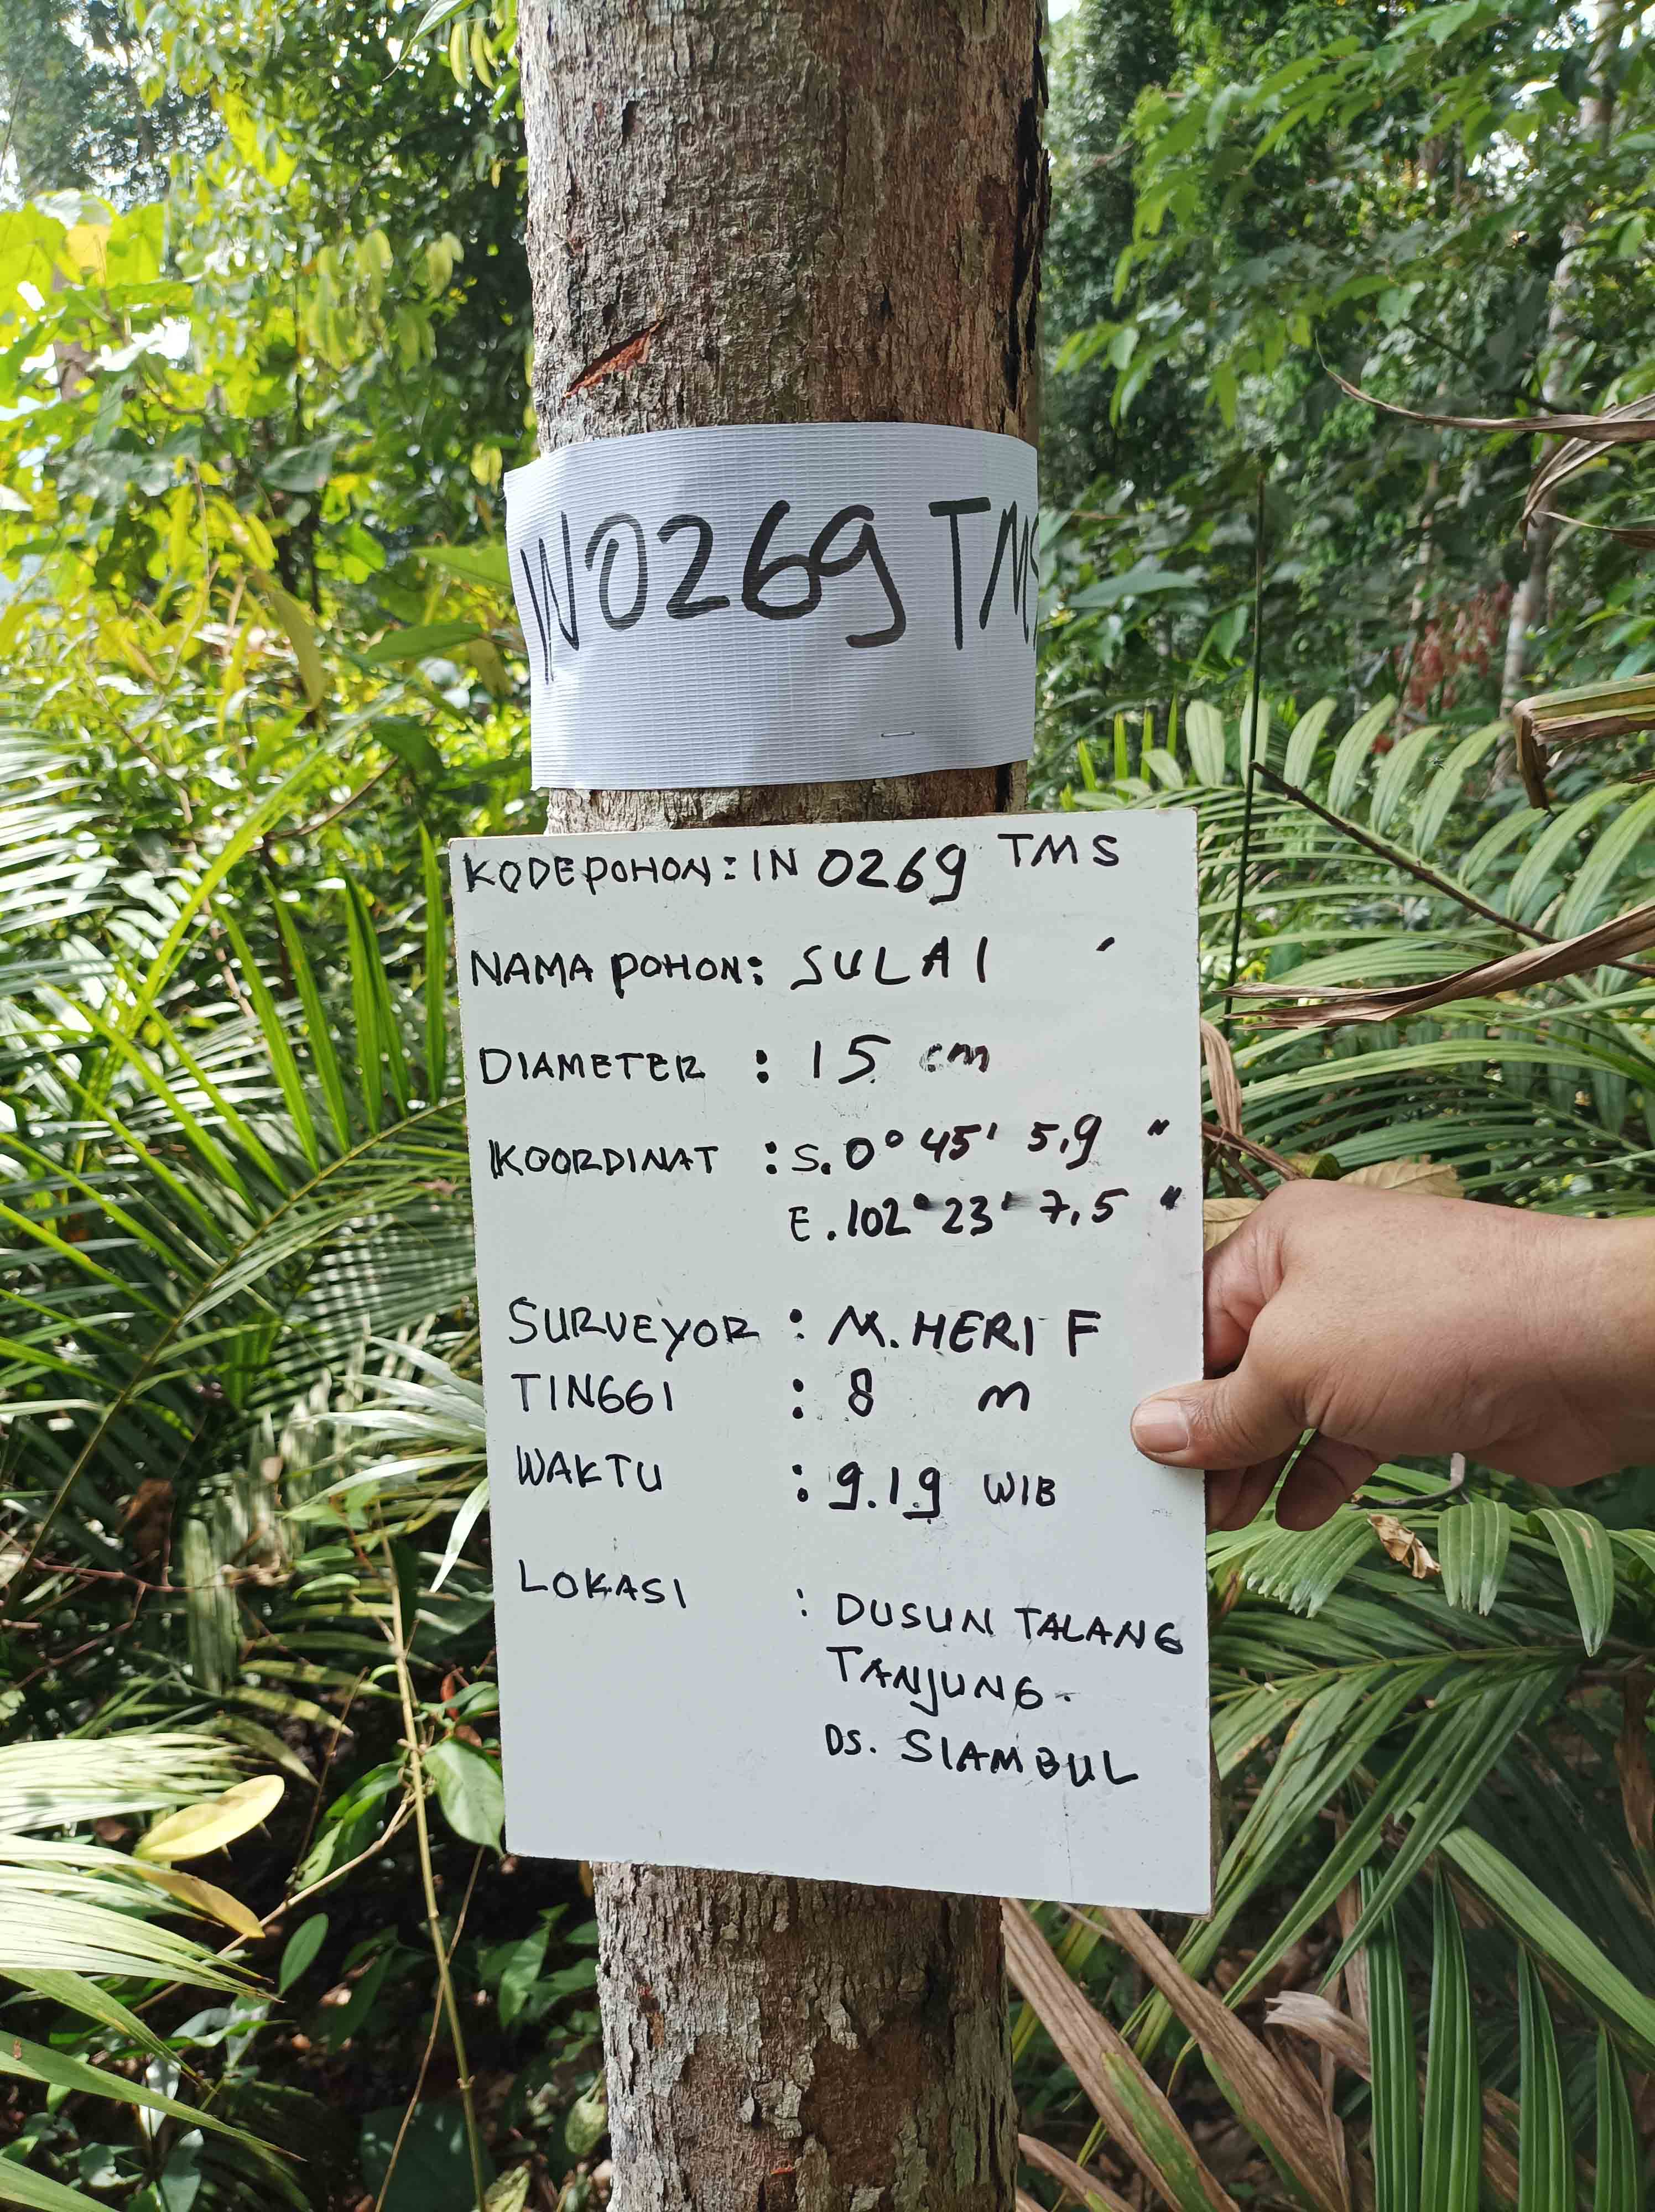 IN0269 TMS
KODE POHON: IN 0269 TMS
NAMA POHON: SULAI
DIAMETER : 15 cm
KOORDINAT : S. 0° 45' 5,9 "
E. 102° 23' 7,5 "
SURVEYOR : M. HERI F
TINGGI : 8 m
WAKTU : 9.19 WIB
LOKASI : DUSUN TALANG
TANJUNG.
DS. SIAMBUL